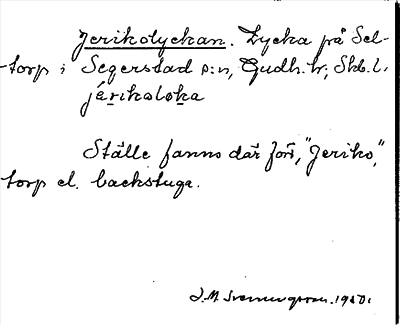 Jerikolyckan. Lycka på Sel-
torp i Segerstad s:n, Gudh. hr, Skb. l.
jérikoloka
Ställe fanns där förr, "Jeriko,"
torp el. backstuga.